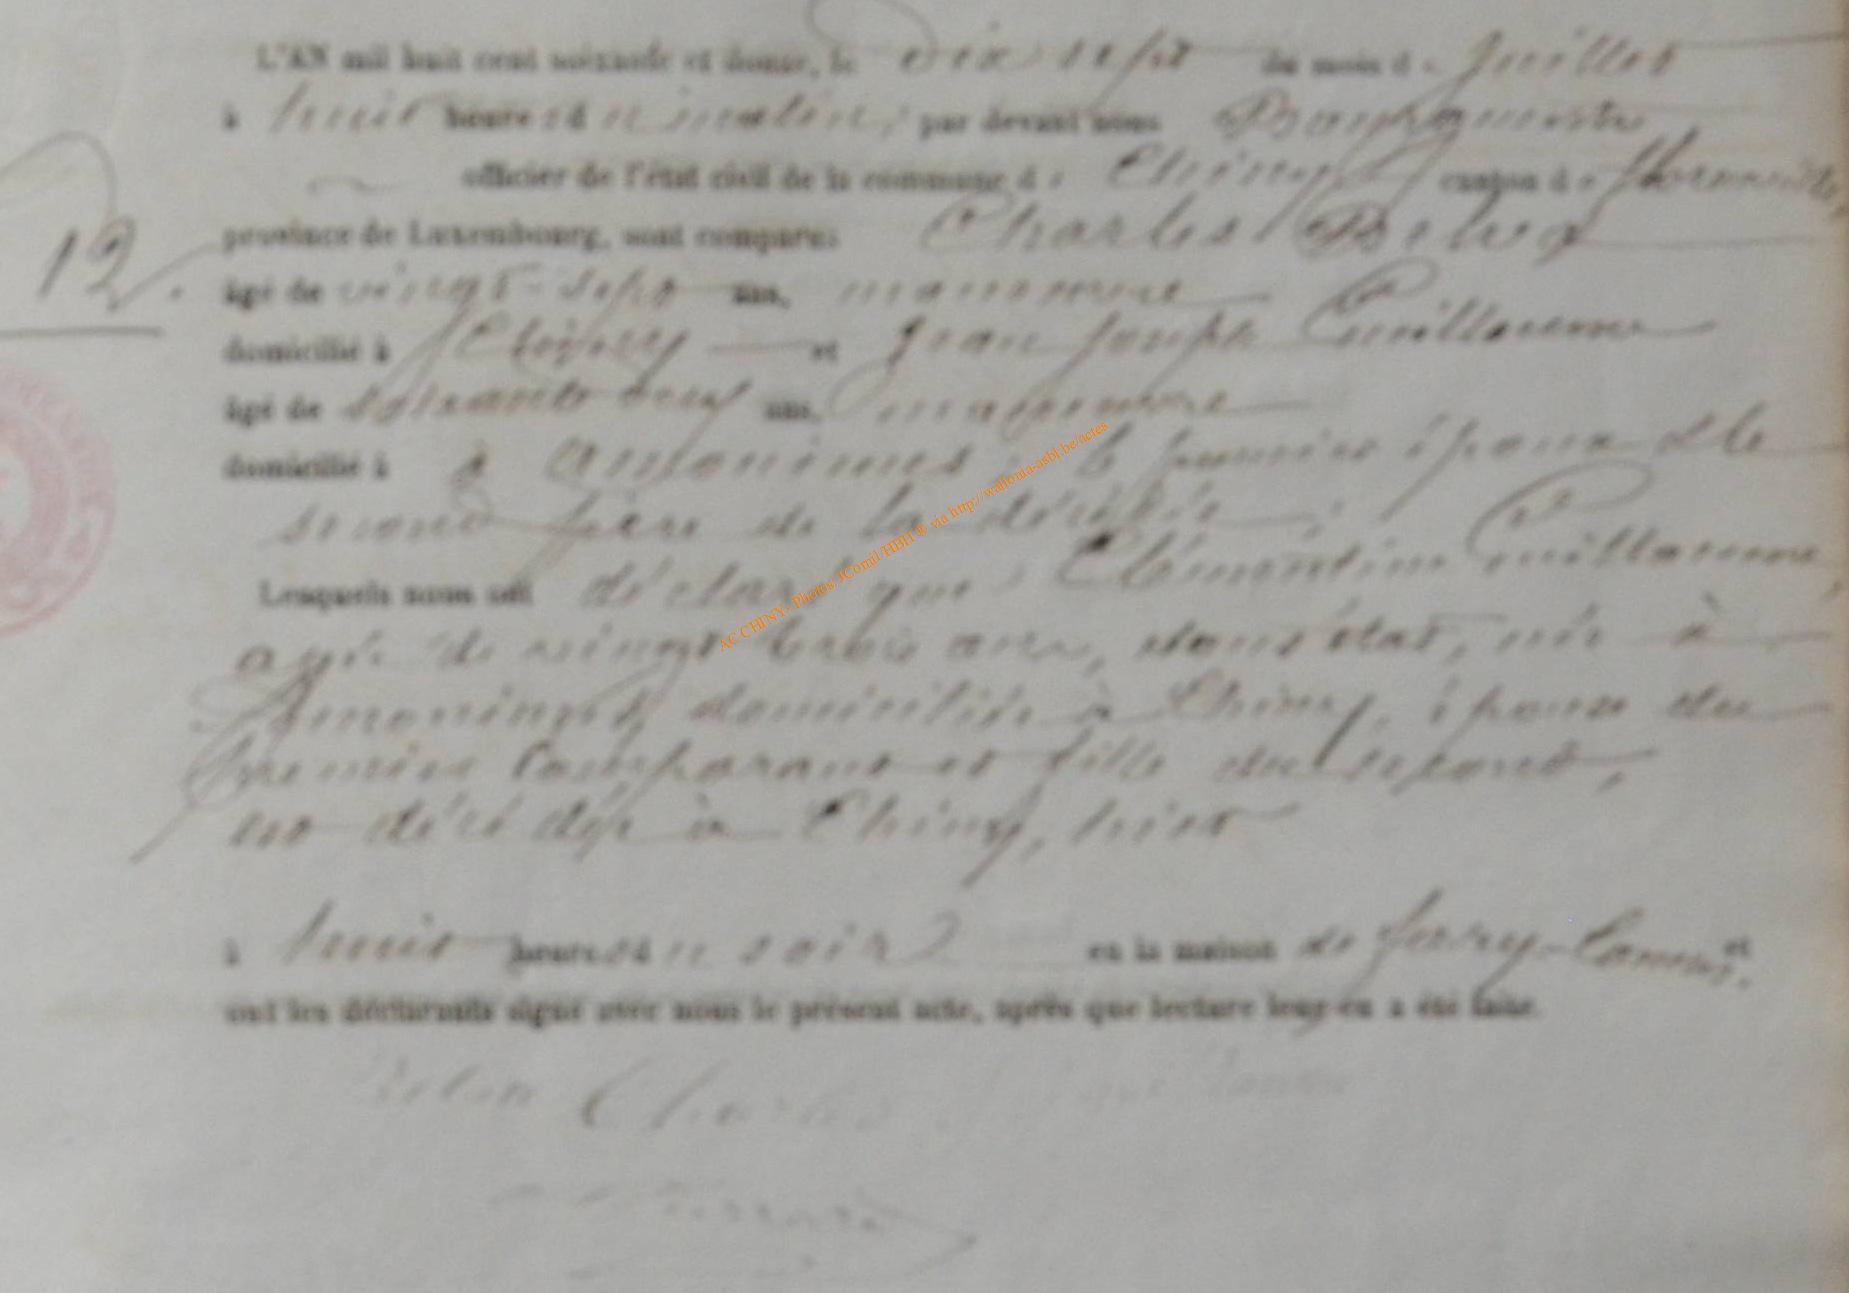 L'AN mil huit cent soixante et douze, le dix sept du mois de Juillet
à huit heures du matin, par devant nous Bourgmestre
officier de l'état civil de la commune de Chiny canton de florenville,
province de Luxembourg, sont comparus Charles
12. âgé de vingt-sept ans, manoeuvre
domicilié à Chiny et Jean Joseph Guillaume
âgé de soixante ans, manoeuvre
domicilié à à le premier époux & le
second père de la décédée ;
Lesquels nous ont déclaré que Clémentine Guillaume,
agée de vingt trois ans, sans état, née à
domiciliée à Chiny, épouse du
premier comparant et fille du second,
est décédée à Chiny, hier
à huit heures du soir en la maison de et
ont les déclarants signé avec nous le présent acte, après que lecture leur en a été faite.
Charles
AC CHINY- Photos: JComil HBH ® via http://wallonia-asbl.be/actes